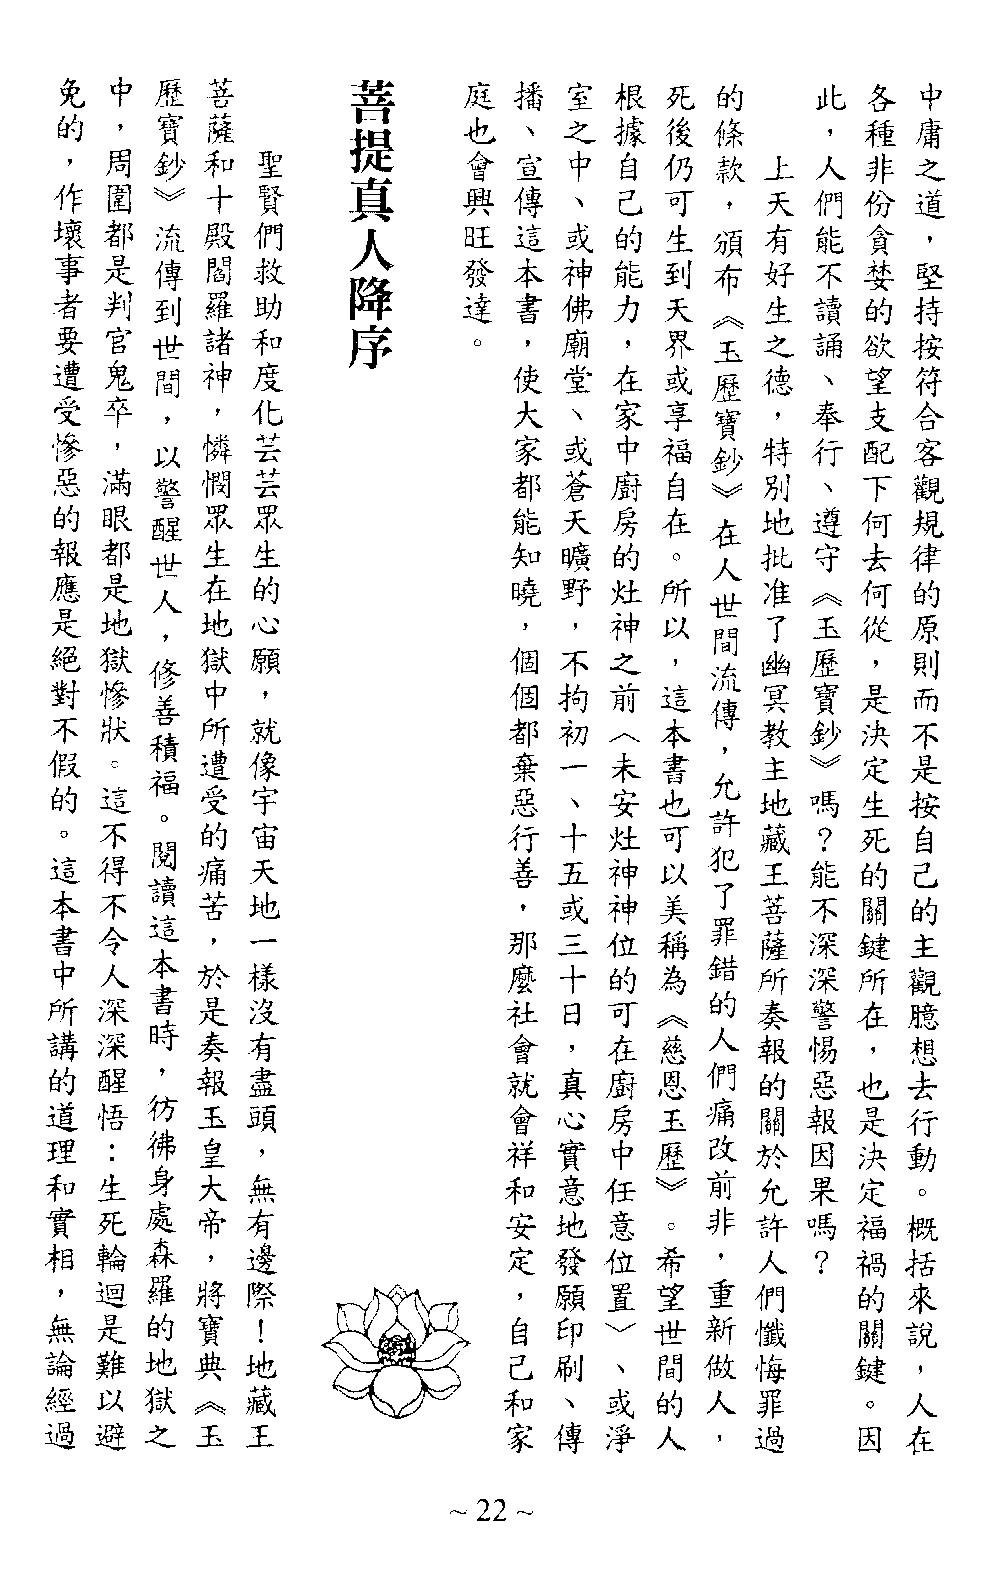 中庸之道，堅持按符合客觀規律的原則而不是按自己的主觀臆想去行動。概括來說，人在
各種非份貪婪的欲望支配下何去何從，是決定生死的關鍵所在，也是決定福禍的關鍵。因
此，人們能不讀誦、奉行、遵守《玉歷寶鈔》嗎？能不深深警惕惡報因果嗎？
上天有好生之德，特別地批准了幽冥教主地藏王菩薩所奏報的關於允許人們懺悔罪過
的條款，頒布《玉歷寶鈔》在人世間流傳，允許犯了罪錯的人們痛改前非，重新做人，
死後仍可生到天界或享福自在。所以，這本書也可以美稱為《慈恩玉歷》。希望世間的人
根據自己的能力，在家中廚房的灶神之前（未安灶神神位的可在廚房中任意位置）、或淨
室之中、或神佛廟堂、或蒼天曠野，不拘初一、十五或三十日，真心實意地發願印刷、傳
播、宣傳這本書，使大家都能知曉，個個都棄惡行善，那麼社會就會祥和安定，自己和家
庭也會興旺發達。
菩提真人降序
聖賢們救助和度化芸芸眾生的心願，就像宇宙天地一樣沒有盡頭，無有邊際！地藏王
菩薩和十殿閻羅諸神，憐憫眾生在地獄中所遭受的痛苦，於是奏報玉皇大帝，將寶典《玉
歷寶鈔》流傳到世間，以警醒世人，修善積福。閱讀這本書時，彷彿身處森羅的地獄之
中，周圍都是判官鬼卒，滿眼都是地獄慘狀。這不得不令人深深醒悟：生死輪迴是難以避
免的，作壞事者要遭受慘惡的報應是絕對不假的。這本書中所講的道理和實相，無論經過
~ 22 ~